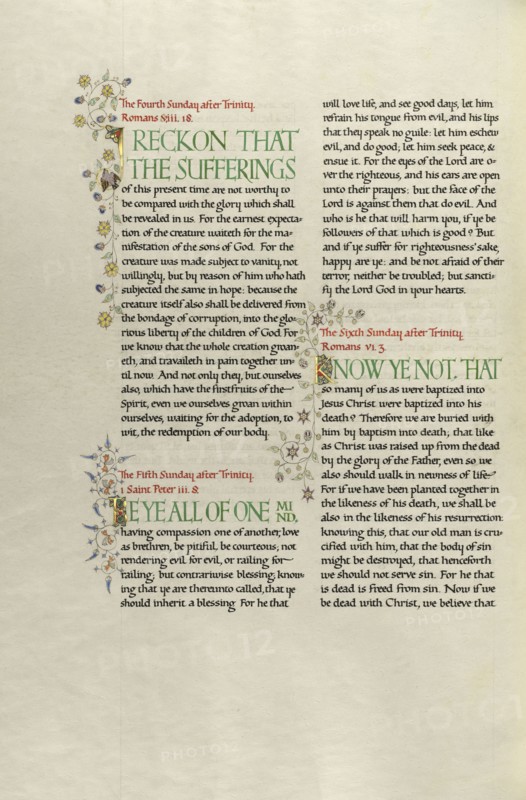 The Fourth Sunday after Trinity.
Romans viii. 18.
I RECKON THAT
THE SUFFERINGS
of this present time are not worthy to
be compared with the glory which shall
be revealed in us. For the earnest expecta-
tion of the creature waiteth for the ma-
nifestation of the sons of God. For the
creature was made subject to vanity, not
willingly, but by reason of him who hath
subjected the same in hope: because the
creature itself also shall be delivered from
the bondage of corruption, into the glo-
rious liberty of the children of God. For
we know that the whole creation groan-
eth, and travaileth in pain together un-
til now. And not only they, but ourselves
also, which have the firstfruits of the
Spirit, even we ourselves groan within
ourselves, waiting for the adoption, to
wit, the redemption of our body.
The Fifth Sunday after Trinity.
1 Saint Peter iii. 8.
BE YE ALL OF ONE MI
ND,
having compassion one of another, love
as brethren, be pitiful, be courteous; not
rendering evil for evil, or railing for
railing; but contrariwise blessing; know-
ing that ye are thereunto called, that ye
should inherit a blessing. For he that
will love life, and see good days, let him
refrain his tongue from evil, and his lips
that they speak no guile: let him eschew
evil, and do good; let him seek peace, &
ensue it. For the eyes of the Lord are o-
ver the righteous, and his ears are open
unto their prayers: but the face of the
Lord is against them that do evil. And
who is he that will harm you, if ye be
followers of that which is good? But
and if ye suffer for righteousness' sake,
happy are ye: and be not afraid of their
terror, neither be troubled; but sancti-
fy the Lord God in your hearts.
The Sixth Sunday after Trinity.
Romans vi. 3.
KNOW YE NOT, THAT
so many of us as were baptized into
Jesus Christ were baptized into his
death? Therefore we are buried with
him by baptism into death; that like
as Christ was raised up from the dead
by the glory of the Father, even so we
also should walk in newness of life.
For if we have been planted together in
the likeness of his death, we shall be
also in the likeness of his resurrection:
knowing this, that our old man is cru-
cified with him, that the body of sin
might be destroyed, that henceforth
we should not serve sin. For he that
is dead is freed from sin. Now if we
be dead with Christ, we believe that
PHOTO12